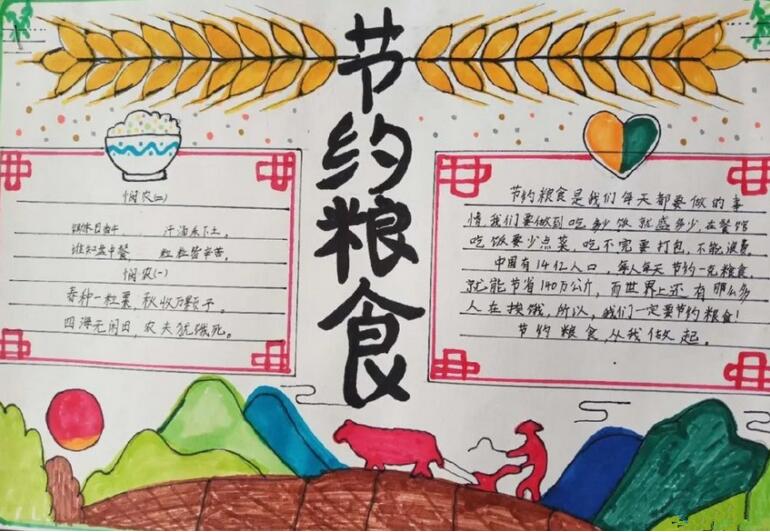 节约粮食
悯农(二)
锄禾日当午,汗滴禾下土。
谁知盘中餐 粒粒皆辛苦。
悯农(一)
春种一粒粟,秋收万颗子。
四海无闲田,农夫犹饿死。
节约粮食是我们每天都要做的事
情,我们要做到吃多少饭就盛多少,在餐馆
吃饭要少点菜,吃不完要打包,不能浪费。
中国有14亿人口,每人每天节约一克粮食,
就能节省140万公斤,而世界上还有那么多
人在挨饿,所以,我们一定要节约粮食!
节约粮食,从我做起。